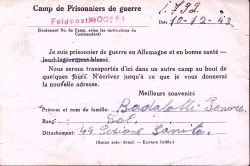 Camp de Prisonniers de guerre 1.792
Feldpost No 00
(Seulement No. du Camp, selon les instructions du Commandant) Date 10-12-43
Je suis prisonnier de guerre en Allemagne et en bonne santé
— (ou) légèrement blessé.
Nous serons transportés d'ici dans un autre camp au bout de
quelques jours. N'écrivez jusqu'à ce que je vous donnerai
la nouvelle adresse.
Meilleurs souvenirs
Prénom et nom de famille: Badalotti
Rang: Sol.
Détachement: 44 Sezione Sanità
(Aucun autre détail. — Ecriture lisible.)